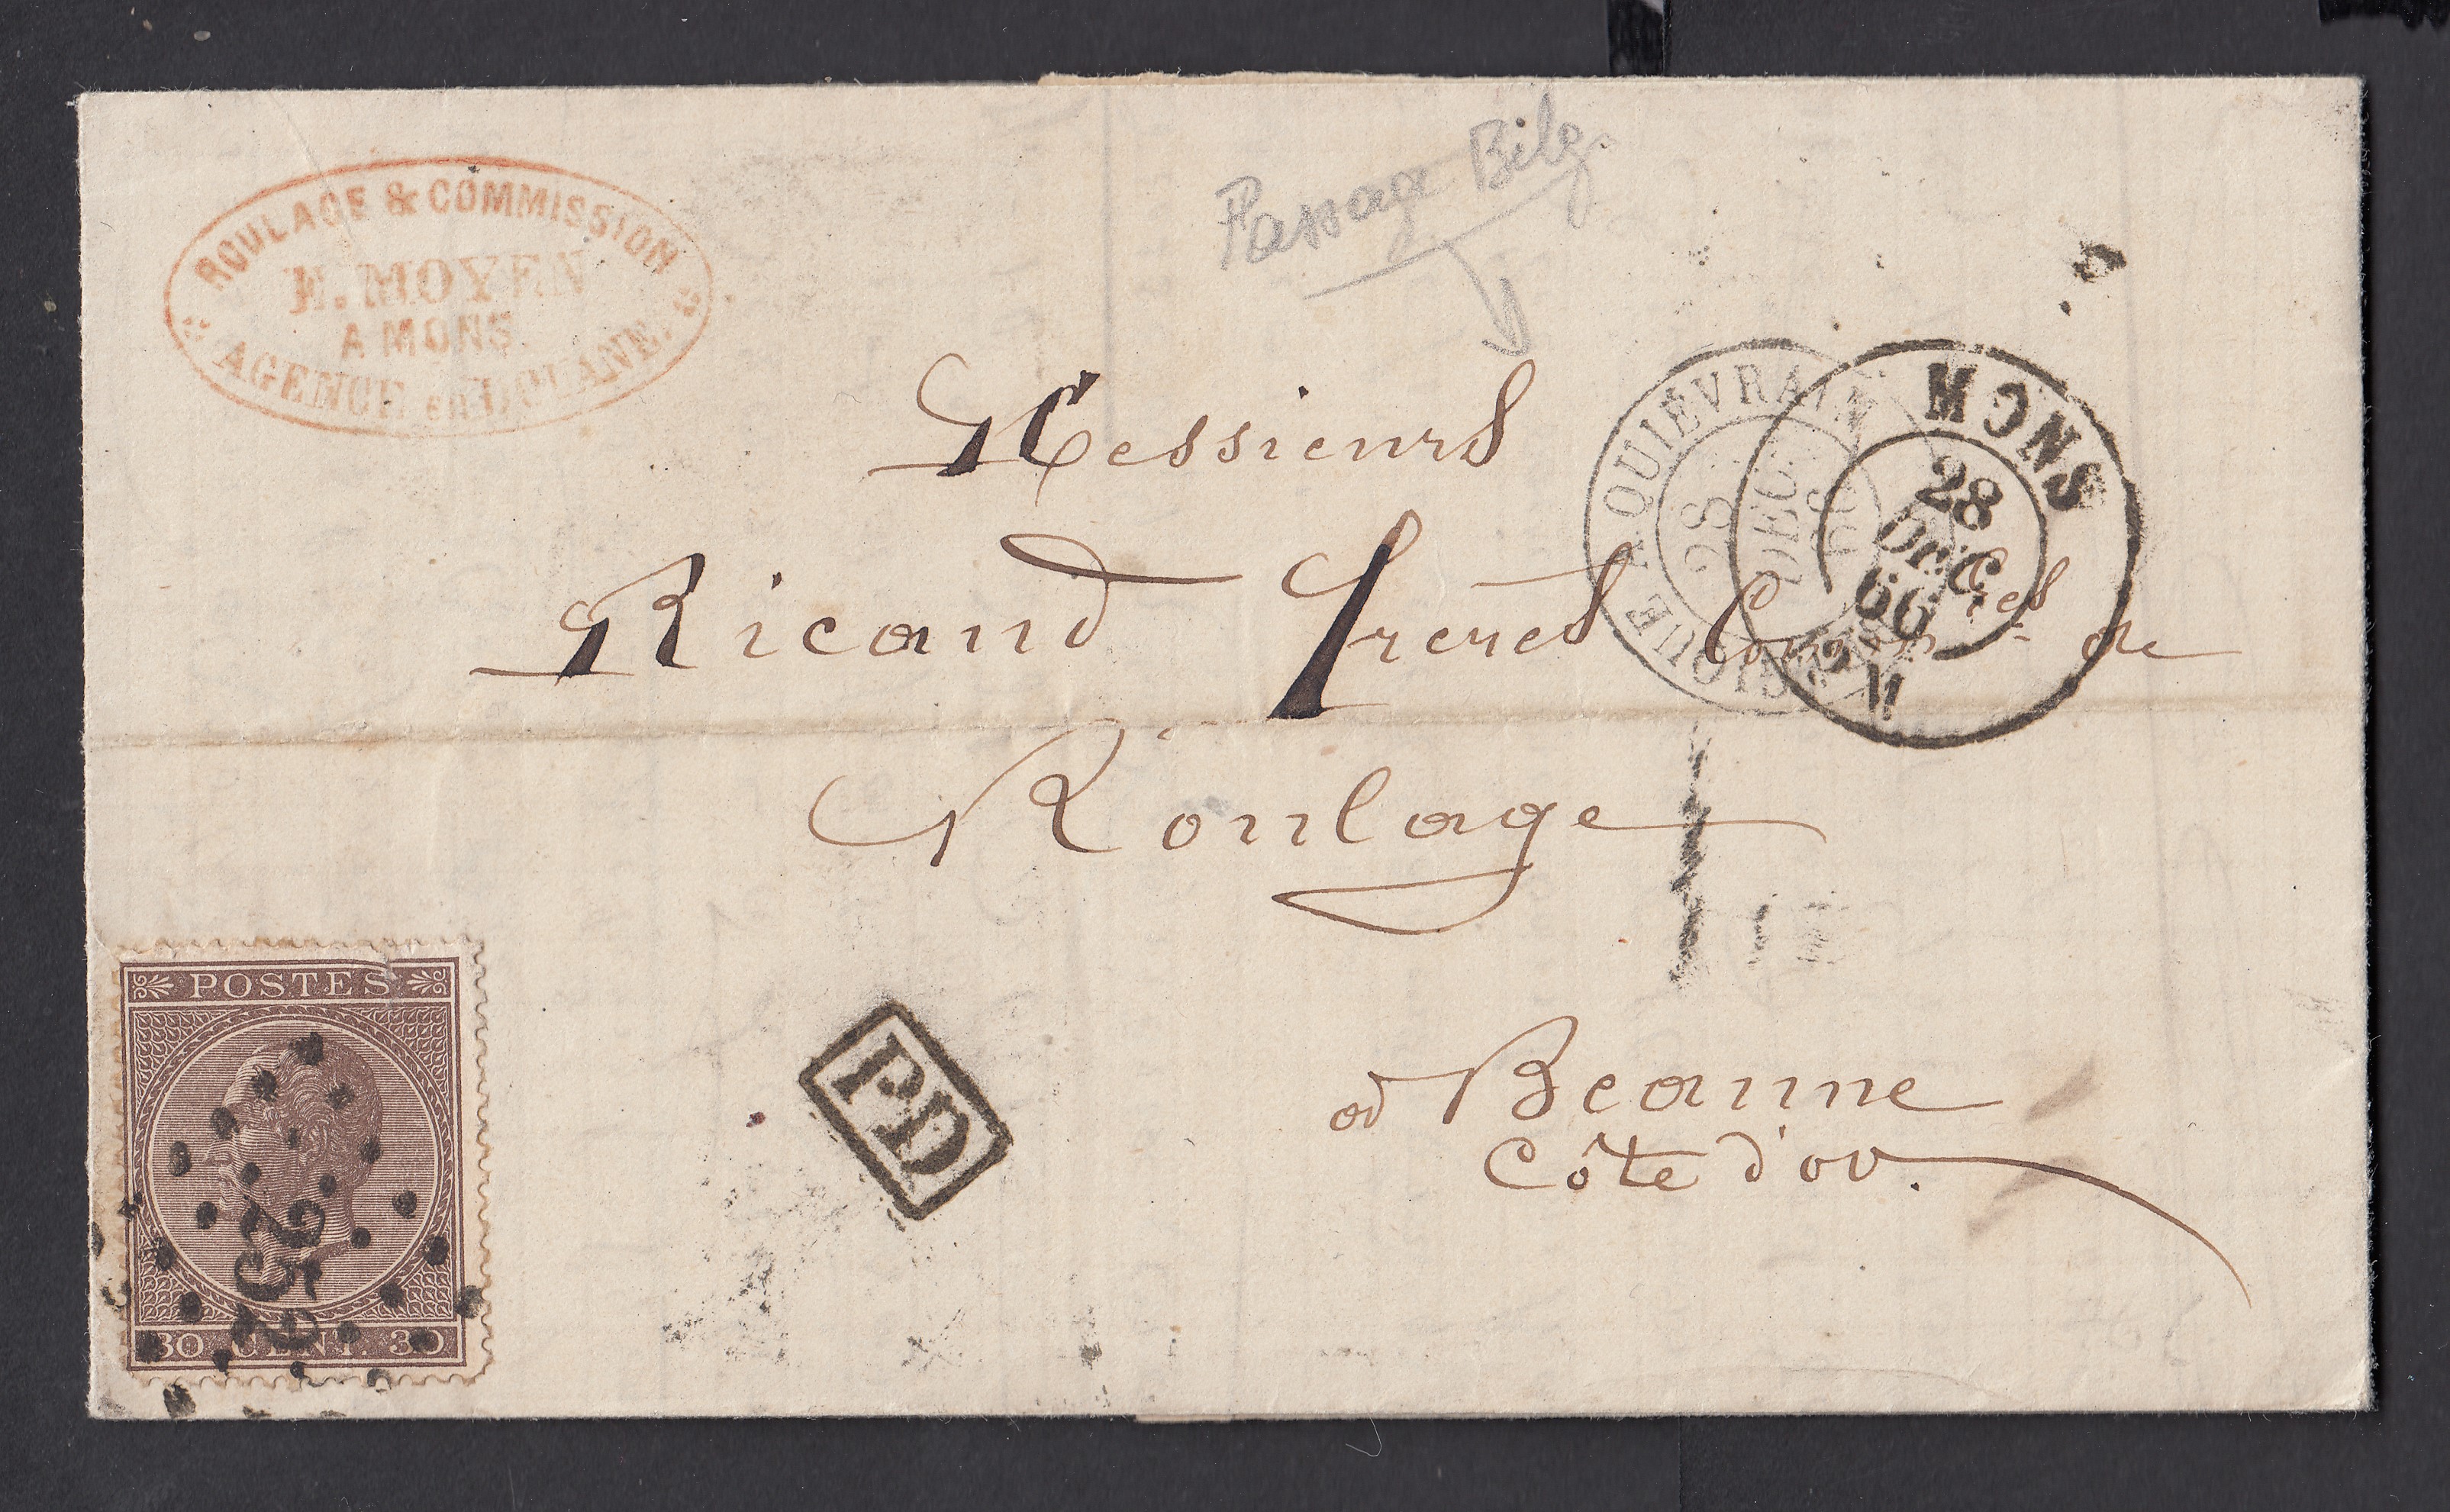 ROULAGE & COMMISSION
E. MOYEN
A MONS.
AGENCE en DOUANE.
Passage Bilg.
Messieurs
Ricaud frères Comm.res de
Roulage
à Beaune
Côte d'or.
QUIÉVRAIN
28
DEC.
66
MONS
28
DEC
66
PD
POSTES
252
30 CENT. 30